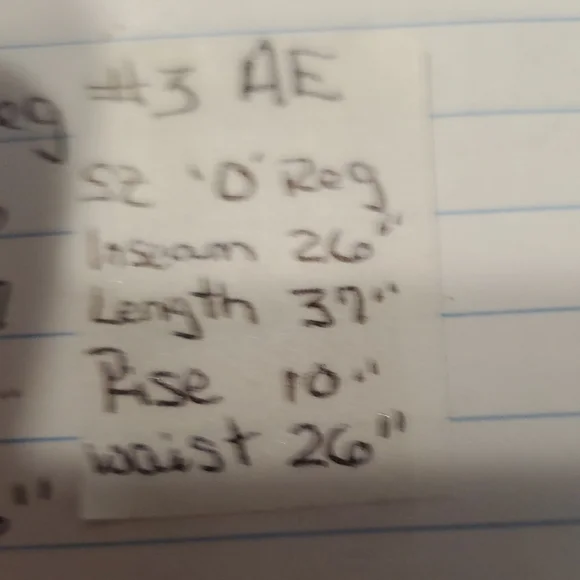 #3 AE
eg
SZ "0" Reg
Inseam 26"
Length 37"
Rise 10"
waist 26"